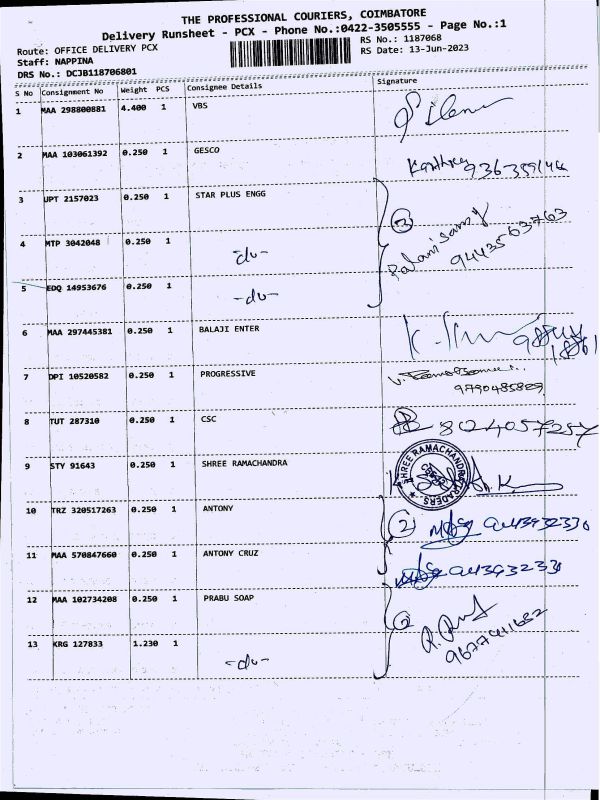 THE PROFESSIONAL COURIERS, COIMBATORE
Delivery Runsheet - PCX - Phone No.:0422-3505555 - Page No.:1
Route: OFFICE DELIVERY PCX
RS No.: 1187068
Staff: NAPPINA
RS Date: 13-Jun-2023
DRS No.: DCJB118706801
S No Consignment No Weight PCS Consignee Details Signature
1 MAA 298800881 4.400 1 VBS
2 MAA 103061392 0.250 1 GESCO
3 UPT 2157023 0.250 1 STAR PLUS ENGG
Palanisamy
9443563763
4 MTP 3042048 0.250 1 -do-
5 EDQ 14953676 0.250 1 -do-
6 MAA 297445381 0.250 1 BALAJI ENTER
7 DPI 10520582 0.250 1 PROGRESSIVE
8 TUT 287310 0.250 1 CSC
9 STY 91643 0.250 1 SHREE RAMACHANDRA
SHREE RAMACHANDRA TRADERS
10 TRZ 320517263 0.250 1 ANTONY
2
11 MAA 570847660 0.250 1 ANTONY CRUZ
12 MAA 102734208 0.250 1 PRABU SOAP
13 KRG 127833 1.230 1 -do-